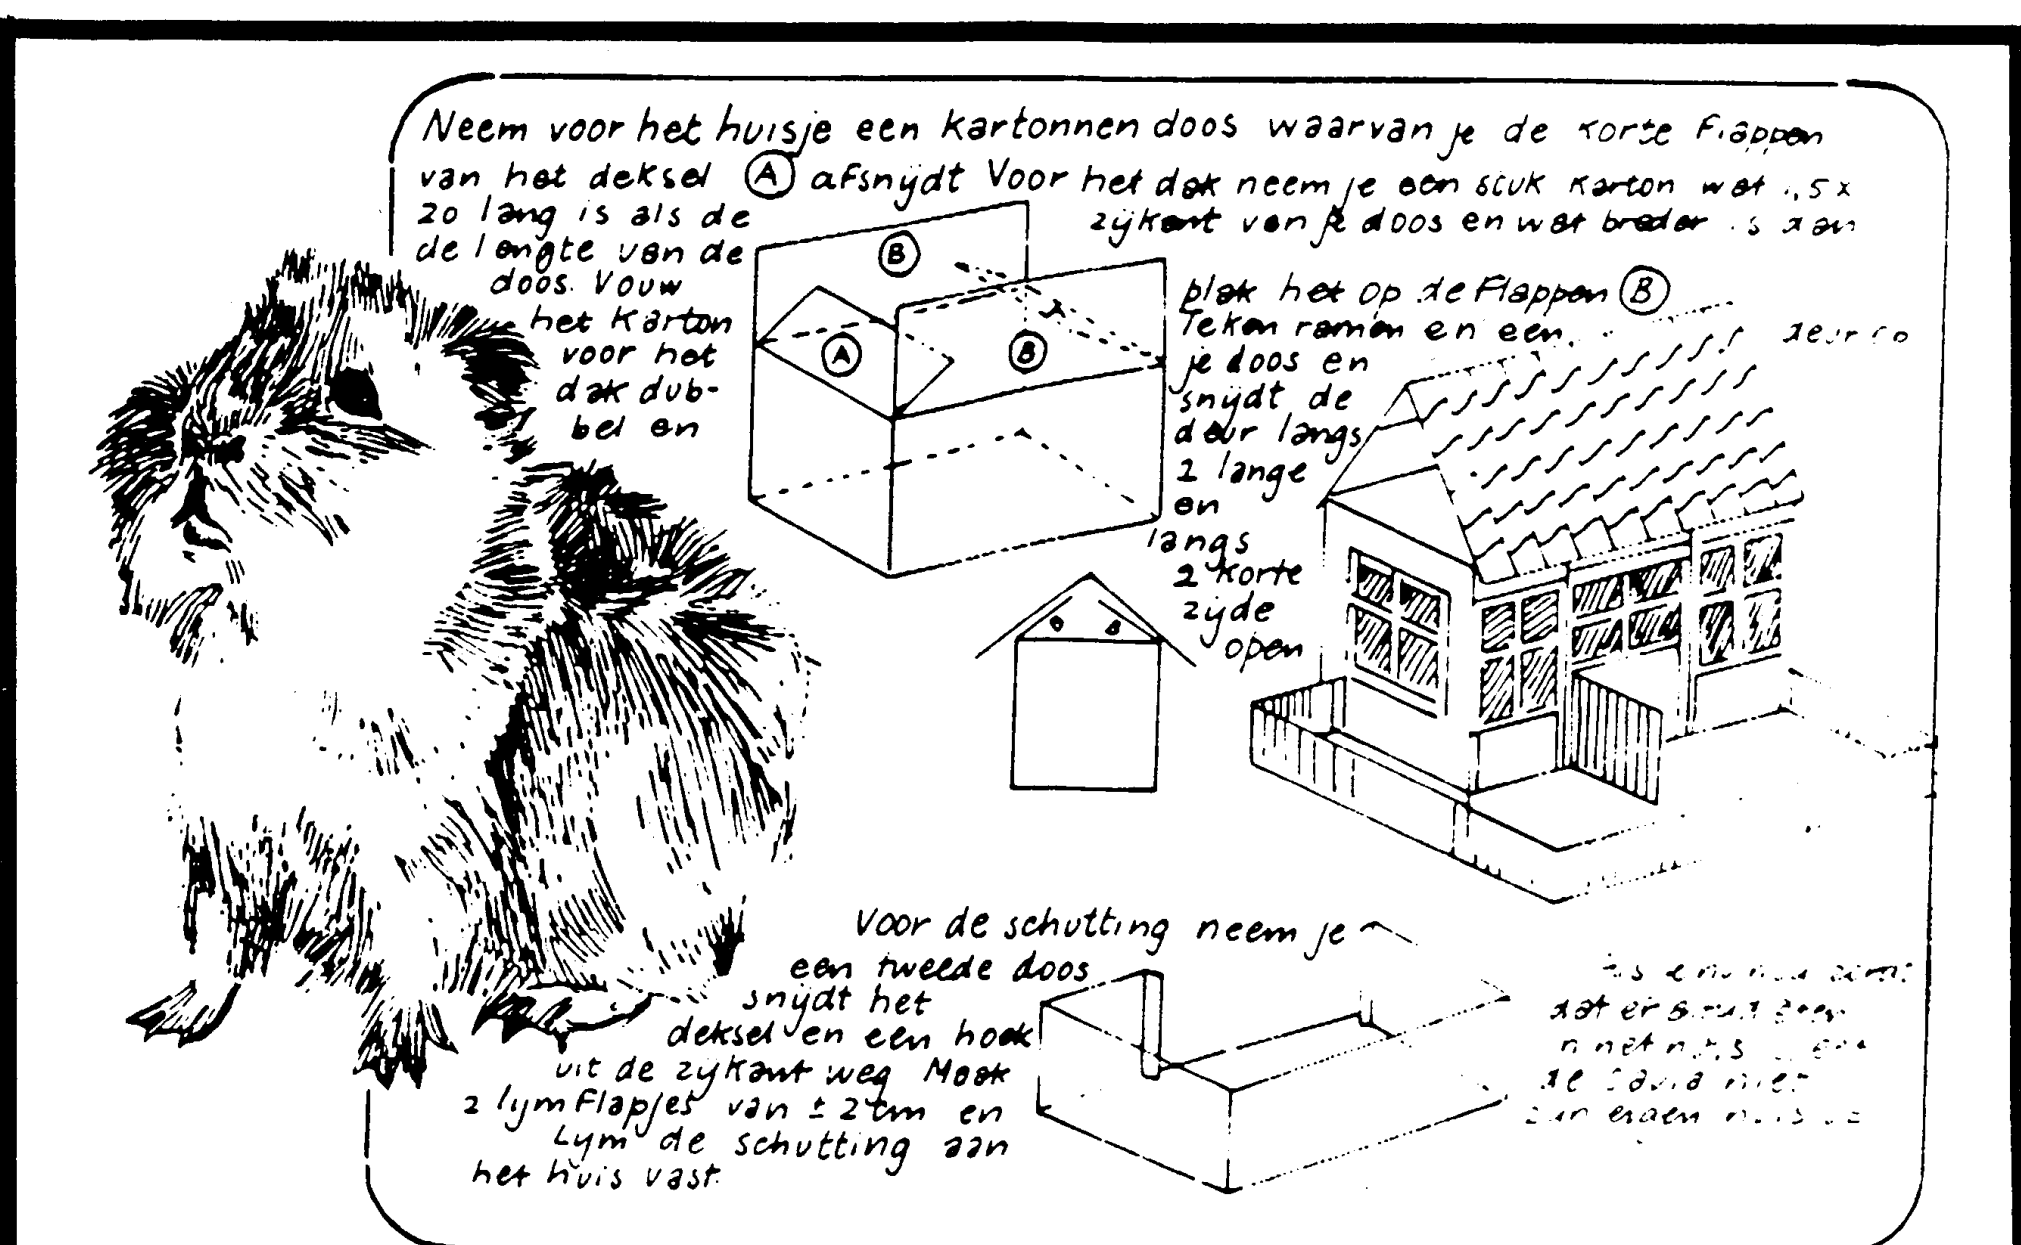 Neem voor het huisje een kartonnen doos waarvan je de korte flappen
van het deksel (A) afsnijdt Voor het dak neem je een stuk karton wat 1,5 x
zo lang is als de zijkant van je doos en wat breder is dan
de lengte van de
doos. Vouw
het karton
voor het
dak dub-
bel en
B
A
B
plak het op de flappen (B)
Teken ramen en een deur op
je doos en
snijdt de
deur langs
1 lange
en
langs
2 korte
zijde
open
B
B
Voor de schutting neem je
een tweede doos
snijdt het
deksel en een hoek
uit de zijkant weg Maak
2 lijmflapjes van ± 2 cm en
Lijm de schutting aan
het huis vast.
dat er
de Cavia niet
eigen huis